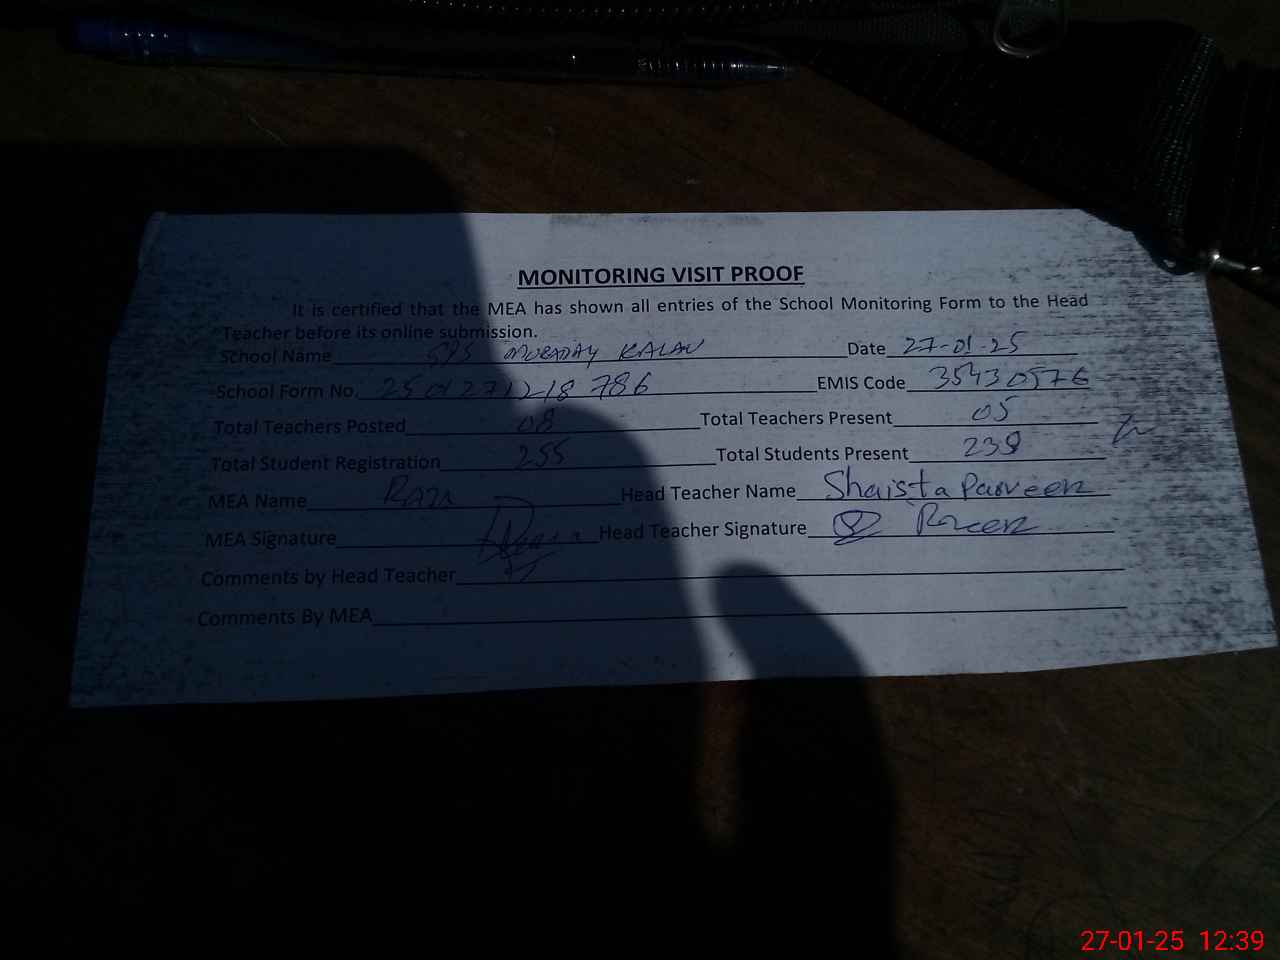 MONITORING VISIT PROOF
It is certified that the MEA has shown all entries of the School Monitoring Form to the Head
Teacher before its online submission.
School Name KALAN Date 27-01-25
School Form No. 2501271218786 EMIS Code 35430576
Total Teachers Posted 08 Total Teachers Present 05
Total Student Registration 255 Total Students Present 239
MEA Name Raza Head Teacher Name Shaista Parveen
MEA Signature Head Teacher Signature
Comments by Head Teacher
Comments By MEA
27-01-25 12:39